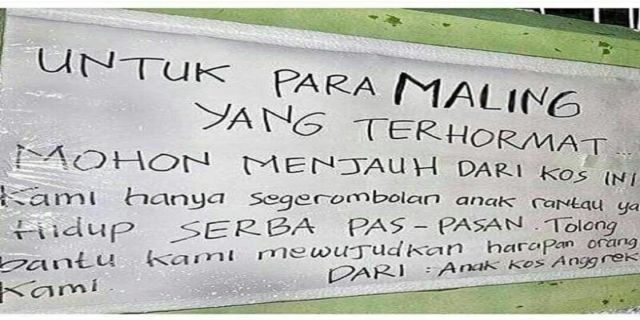 UNTUK PARA MALING
YANG TERHORMAT...
MOHON MENJAUH DARI KOS INI
Kami hanya segerombolan anak rantau ya
Hidup SERBA PAS-PASAN. Tolong
bantu kami mewujudkan harapan orang
Kami.
DARI : Anak Kos Anggrek